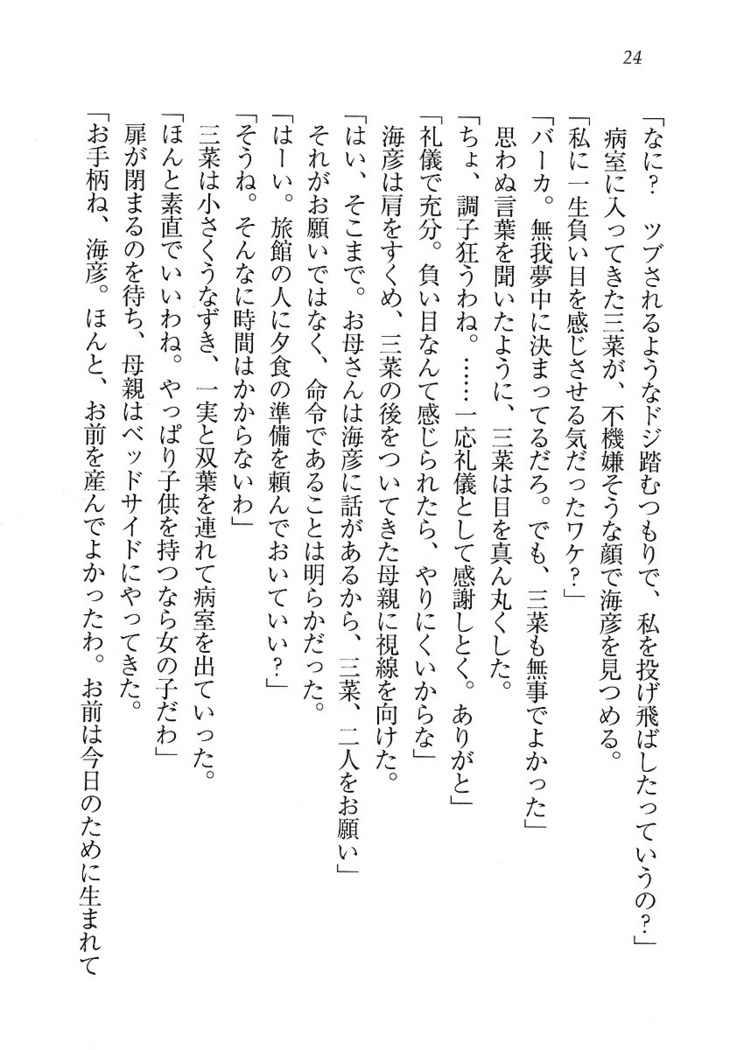 24
「なに？　ツブされるようなドジ踏むつもりで、私を投げ飛ばしたっていうの？」
病室に入ってきた三菜が、不機嫌そうな顔で海彦を見つめる。
「私に一生負い目を感じさせる気だったワケ？」
「バーカ。無我夢中に決まってるだろ。でも、三菜も無事でよかった」
思わぬ言葉を聞いたように、三菜は目を真ん丸くした。
「ちょ、調子狂うわね。……一応礼儀として感謝しとく。ありがと」
「礼儀で充分。負い目なんて感じられたら、やりにくいからな」
海彦は肩をすくめ、三菜の後をついてきた母親に視線を向けた。
「はい、そこまで。お母さんは海彦に話があるから、三菜、二人をお願い」
それがお願いではなく、命令であることは明らかだった。
「はーい。旅館の人に夕食の準備を頼んでおいていい？」
「そうね。そんなに時間はかからないわ」
三菜は小さくうなずき、一実と双葉を連れて病室を出ていった。
「ほんと素直でいいわね。やっぱり子供を持つなら女の子だわ」
扉が閉まるのを待ち、母親はベッドサイドにやってきた。
「お手柄ね、海彦。ほんと、お前を産んでよかったわ。お前は今日のために生まれて